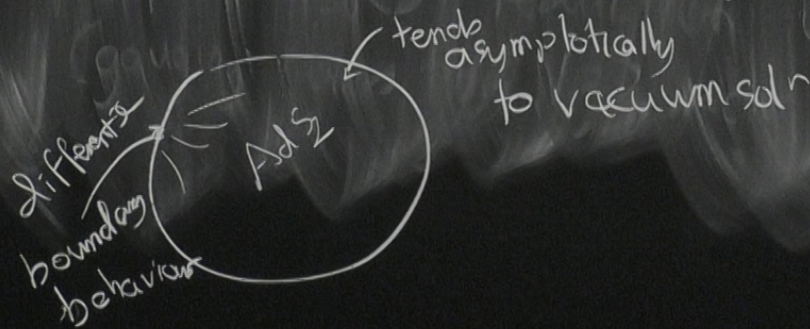 tends
asymptotically
to vacuum soln
AdS2
different
boundary
behaviour